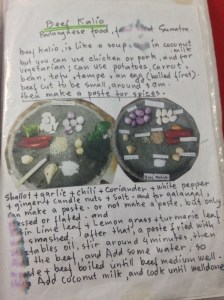 Beef Kalio
Padangnese food, from Sumatra
beef kalio, is like a soup in coconut milk
but you can use chicken or pork, and for
vegetarian; can use potatoes, carrot,
bean, tofu, tempe, an egg (boiled first)
beef cut to be small, around 3 cm.
then make a paste for spices.
Shallot + garlic + chili + coriander + white pepper
+ ginger + candle nuts + salt - and so galangal,
can make a paste - or not make a paste, but only
or flated - and
lime leaf + lemon grass + turmeric leaf
smashed, after that, a paste fried with
oil, stir around 4 minutes, then
the beef, and add some water, to
+ beef boiled until beef medium well.
Add coconut milk, and cook until welldone